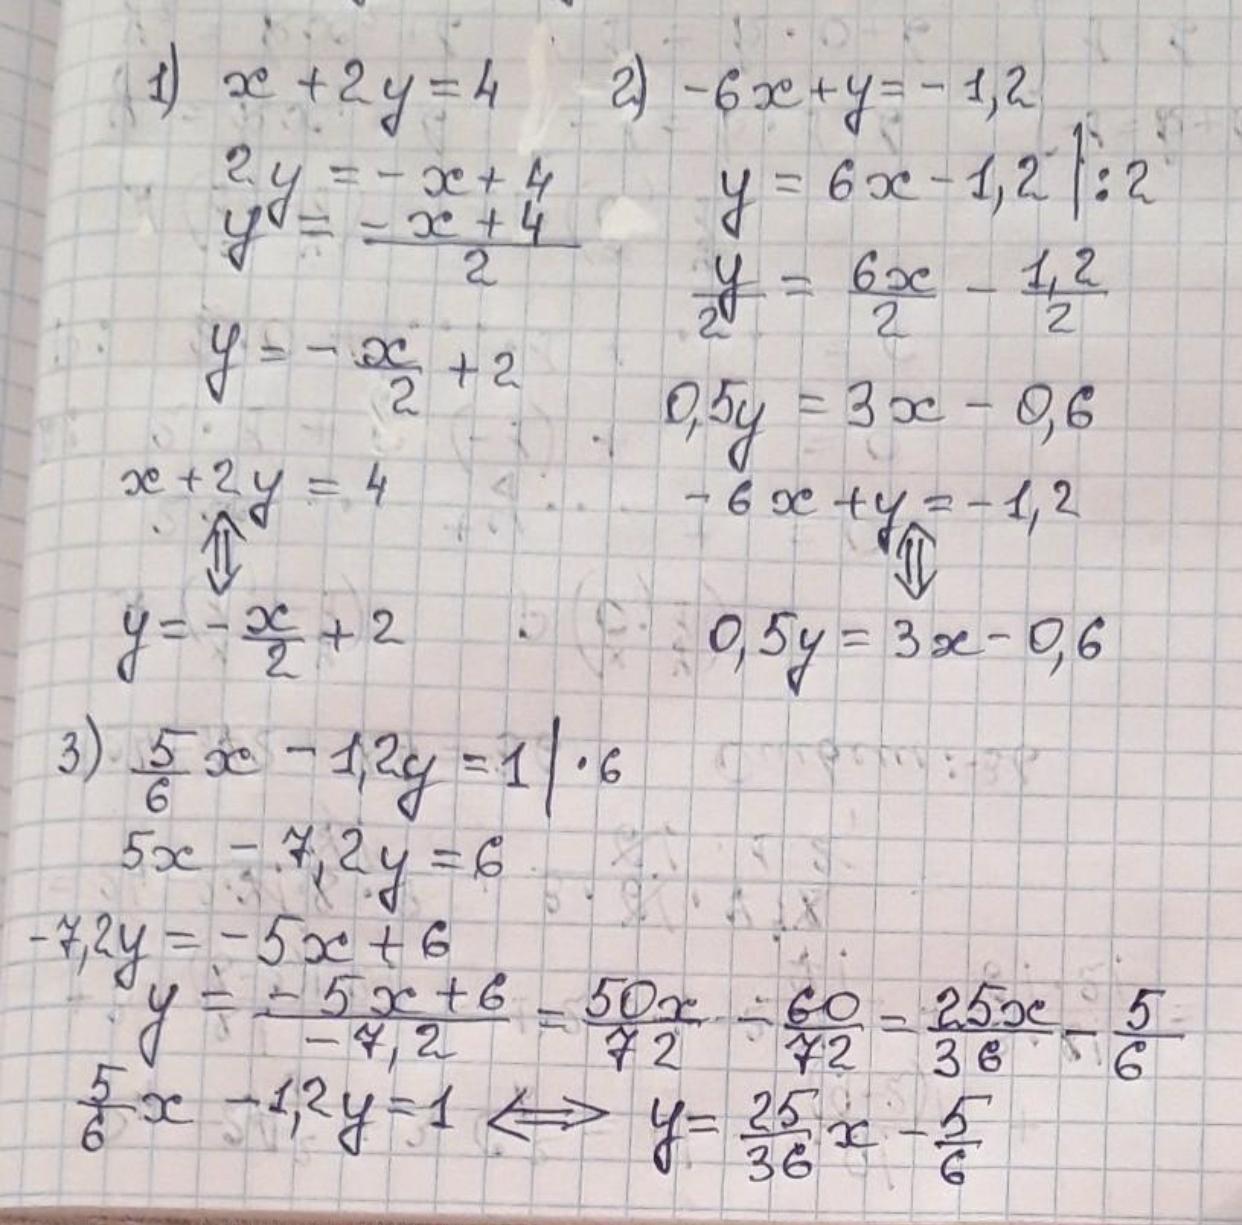 1) x + 2y = 4
2y = -x + 4
y = (-x + 4)/2
y = -x/2 + 2
x + 2y = 4
⇕
y = -x/2 + 2
2) -6x + y = -1,2
y = 6x - 1,2 | : 2
y/2 = 6x/2 - 1,2/2
0,5y = 3x - 0,6
-6x + y = -1,2
⇕
0,5y = 3x - 0,6
3) 5/6 x - 1,2y = 1 | · 6
5x - 7,2y = 6
-7,2y = -5x + 6
y = (-5x + 6)/(-7,2) = 50x/72 - 60/72 = 25x/36 - 5/6
5/6 x - 1,2y = 1 ⟺ y = 25/36 x - 5/6